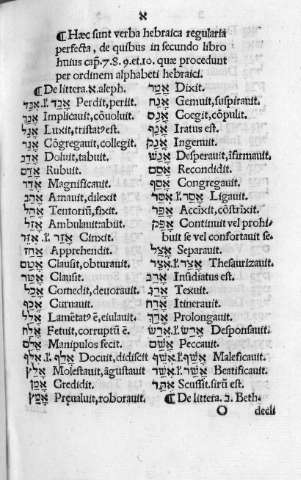 א
¶ Hæc sunt verba hebraica regularia
perfecta, de quibus in secundo libro
huius cap. 7. 8. 9. et. 10. quæ procedunt
per ordinem alphabeti hebraici.
¶ De littera. א. aleph.
אבד .ł. אבד Perdit, periit.
אבך Implicauit, cōuoluit.
אבל Luxit, tristatꝰ est.
אגר Cōgregauit, collegit.
אדב Doluit, tabuit.
אדם Rubuit.
אדר Magnificauit.
אהב Amauit, dilexit
אהל Tentoriū, fixit
אזל Ambulauit abiit
אזר .ł. אזר Cinxit.
אחז Apprehendit.
אטם Clausit, obturauit.
אטר Clausit.
אכל Comedit, deuorauit.
אכף Curuauit.
אלה Lamētatꝰ ē, eiulauit.
אלח Fetuit, corruptū ē.
אלם Manipulos fecit.
אלף .ł. אלף Docuit, didicit
אלץ Molestauit, āgustauit
אמן Credidit.
אמץ Preualuit, roborauit.
אמר Dixit.
אנח Gemuit, suspirauit.
אנס Coegit, cōpulit.
אנף Iratus est.
אנק Ingemuit.
אנש Desperauit, ifirmauit.
אסם Recondidit.
אסף Congregauit.
אסר .ł. אסר Ligauit.
אפד Accixit, cōstrixit.
אפק Continuit vel prohi-
buit se vel confortauit se.
אצל Separauit.
אצר .ł. אצר Thesaurizauit.
ארב Insidiatus est.
ארג Texuit.
ארח Itinerauit.
ארך Prolongauit.
ארש .ł. ארש Desponsauit.
אשם Peccauit.
אשף .ł. אשף Maleficauit.
אשר .ł. אשר Beatificauit.
est.
¶ De littera. ב. Beth.
O decli